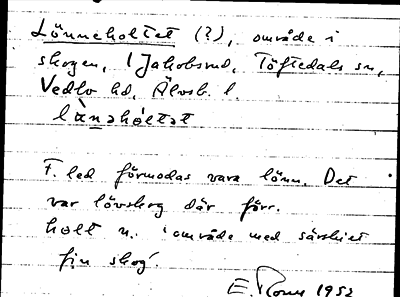 Lönneholtet (?), område i
skogen, 1 Jakobsrud, Töftedals sn,
Vedbo hd, Älvsb. l.
lànəhóltət
F. led förmodas vara lönn. Det
var lövskog där förr.
holt n. 'område med särskilt
fin skog'.
E. 1952